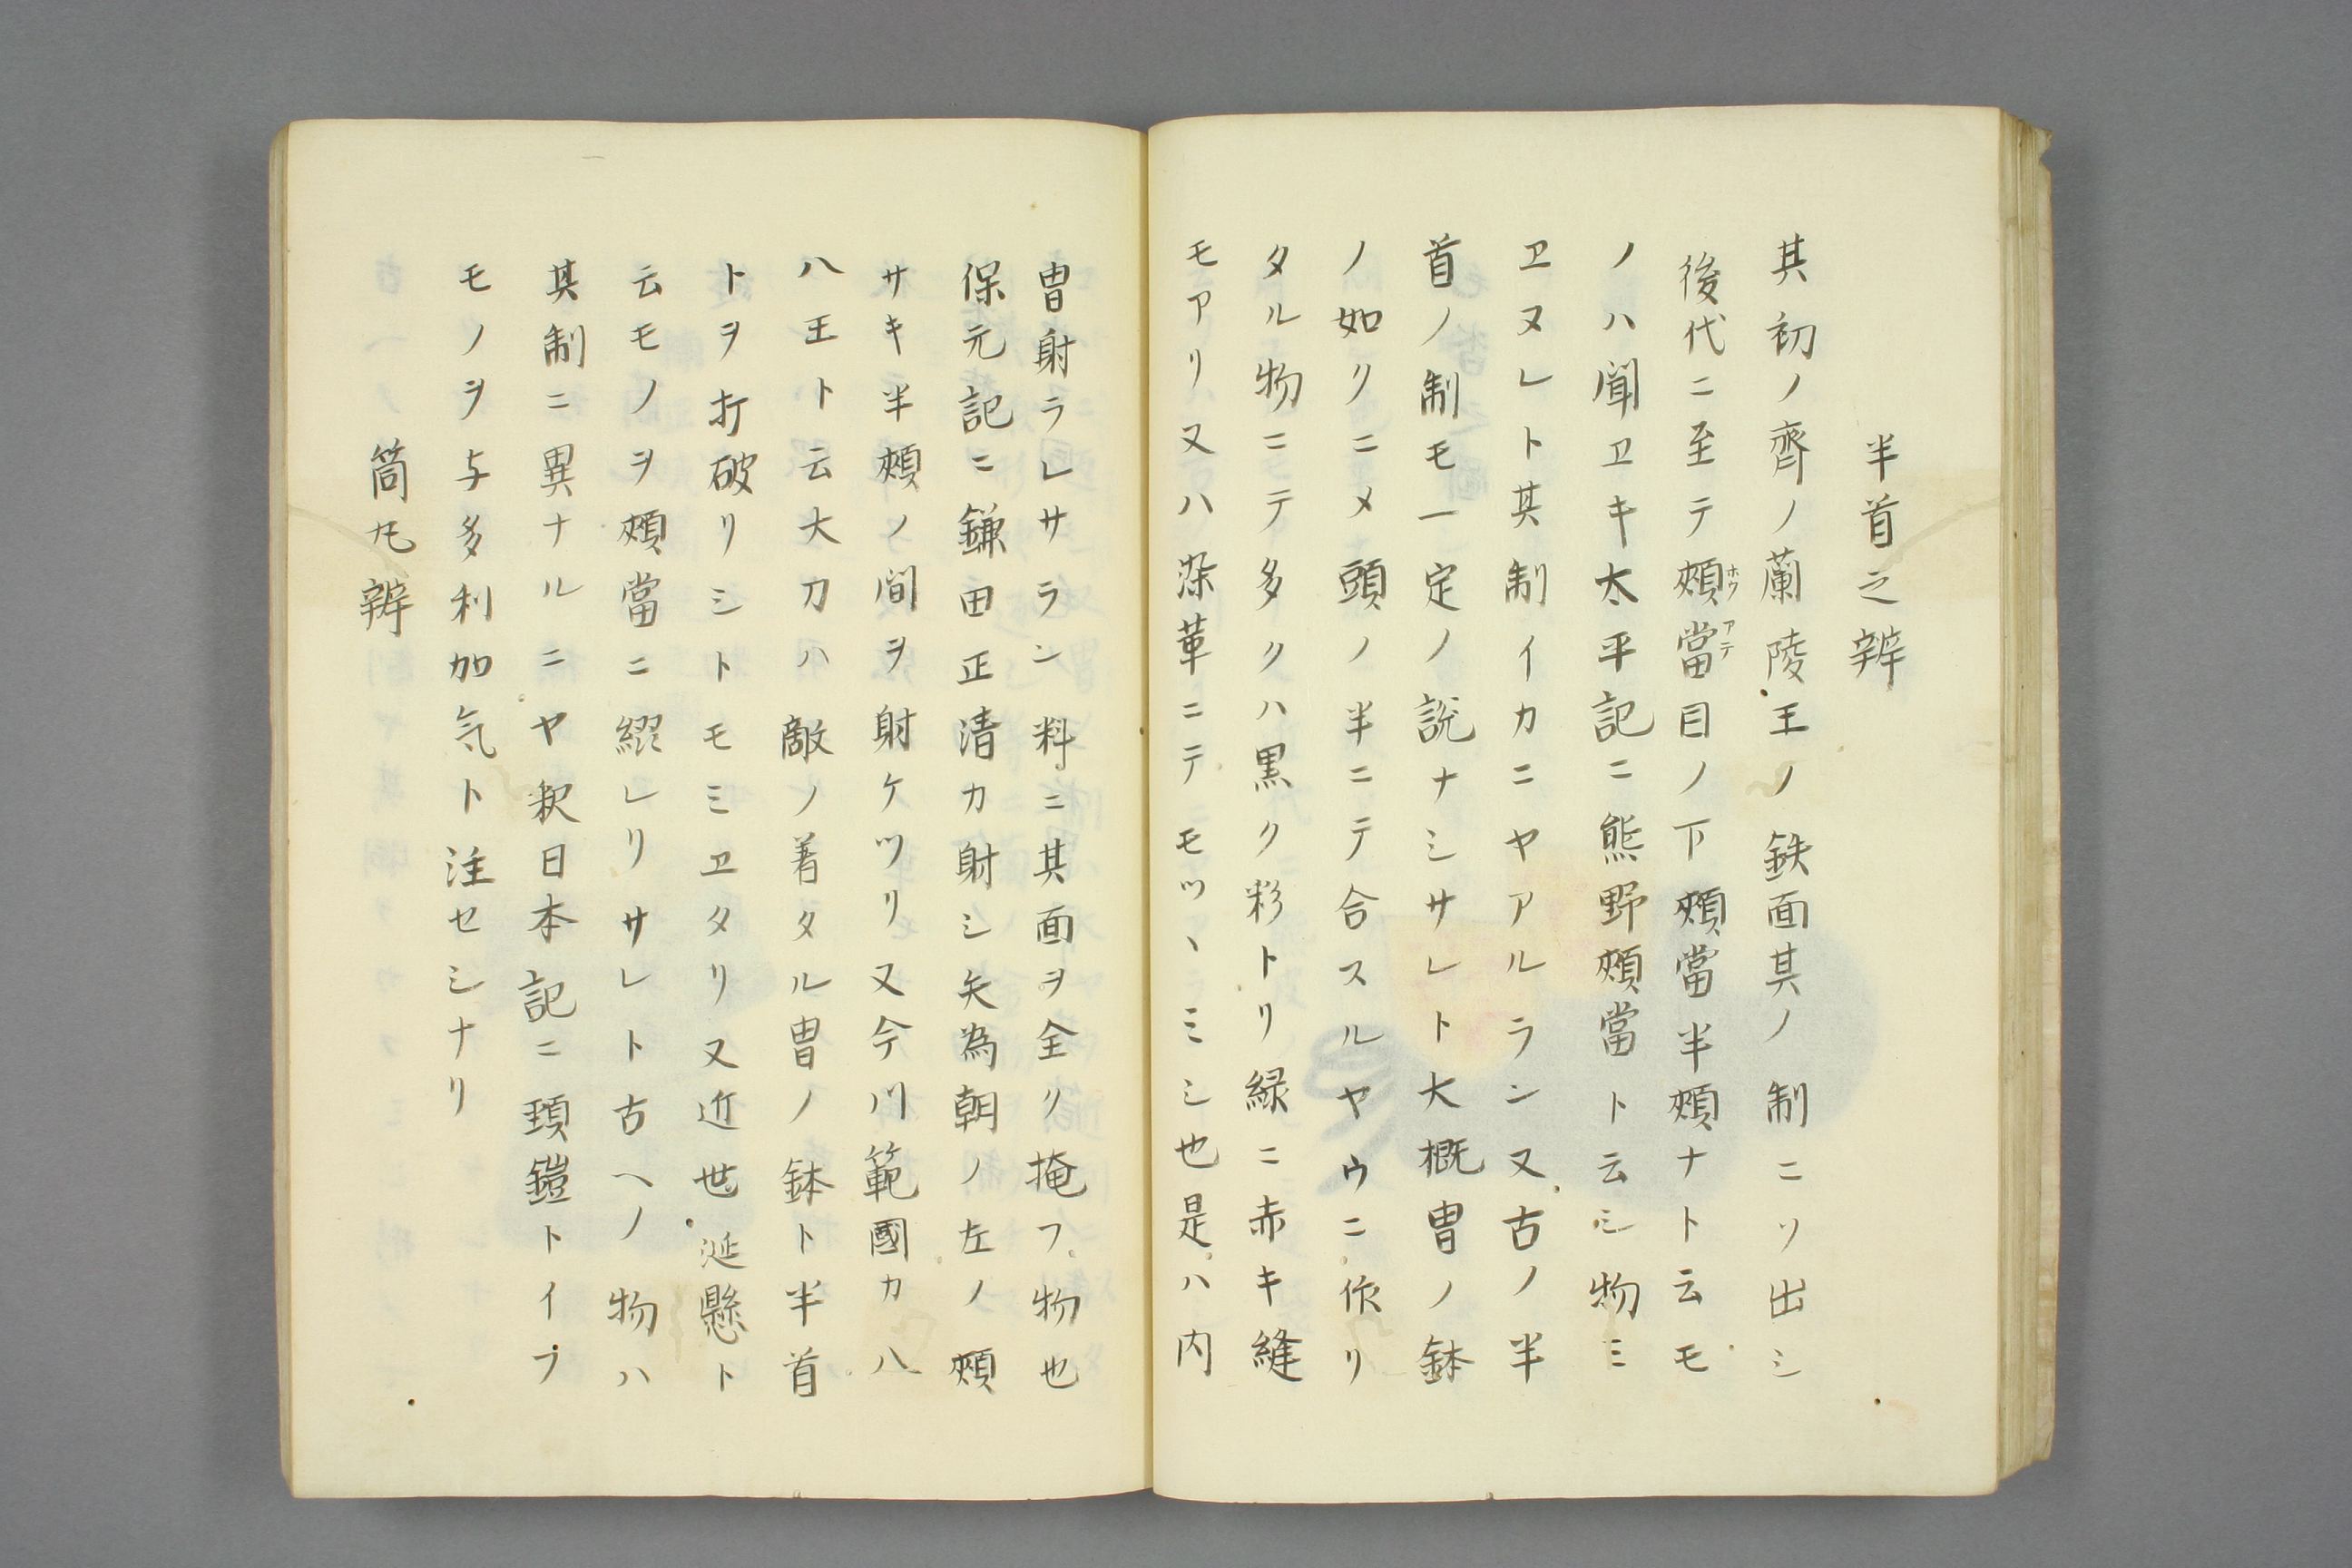 半首之辨
其初ノ齊ノ蘭陵王ノ鉄面其ノ制ニソ出シ
後代ニ至テ頰當目ノ下頰當半頰ナト云モ
ホウ アテ
ノハ聞ヱキ太平記ニ熊野頰當ト云シ物ミ
ヱヌレト其制イカニヤアルラン又古ノ半
首ノ制モ一定ノ説ナシサレト大概冑ノ鉢
ノ如クニメ頭ノ半ニテ合スルヤウニ作リ
タル物ニテ多クハ黒ク彩トリ緑ニ赤キ縫
モアリ又ハ染革ニテモツヽミシ也是ハ内
冑射ラレサラン料ニ其面ヲ全ク掩フ物也
保元記ニ鎌田正清カ射シ矢為朝ノ左ノ頰
サキ半頰ノ間ヲ射ケツリ又今川範國カ八
八王ト云大刀ハ敵ノ着タル冑ノ鉢ト半首
トヲ打破リシトモミヱタリ又近世涎懸ト
云モノヲ頰當ニ綴レリサレト古ヘノ物ハ
其制ニ異ナルニヤ釈日本記ニ頚鎧トイフ
モノヲ与多利加気ト注セシナリ
筒丸辨